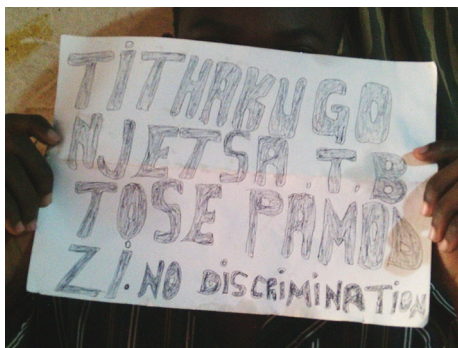 TITHAKU GO
NJETSA . T. B
TOSE PAMOD
ZI. NO DISCRIMINATION